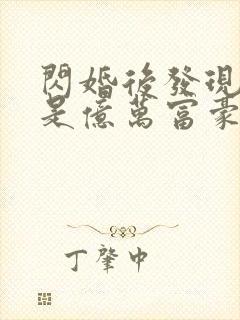 閃婚後發現
是億萬富豪
丁肇中